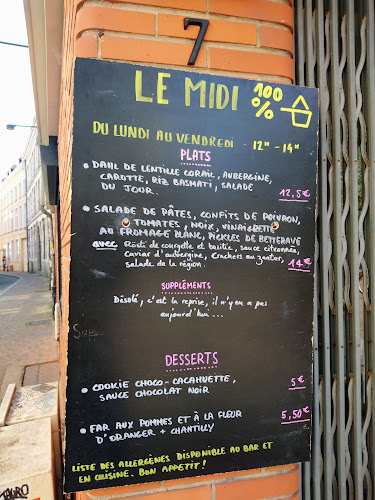 7
LE MIDI 100 %
DU LUNDI AU VENDREDI · 12H - 14H
PLATS
• DAHL DE LENTILLE CORAIL, AUBERGINE,
CAROTTE, RIZ BASMATI, SALADE
DU JOUR. 12,5€
• SALADE DE PÂTES, CONFITS DE POIVRON,
TOMATES, NOIX, VINAIGRETTE
AU FROMAGE BLANC, PICKLES DE BETTERAVE
avec Rösti de courgette et basilic, sauce citronnée,
Caviar d'aubergine, Crackers au zaatar,
salade de la région. 14€
SUPPLÉMENTS
Désolé, c'est la reprise, il n'y en a pas
aujourd'hui ...
DESSERTS
• COOKIE CHOCO-CACAHUETTE,
SAUCE CHOCOLAT NOIR 5€
• FAR AUX POMMES ET À LA FLEUR
D'ORANGER + CHANTILLY 5,50€
LISTE DES ALLERGÈNES DISPONIBLE AU BAR ET
EN CUISINE. BON APPETIT !
TAURO